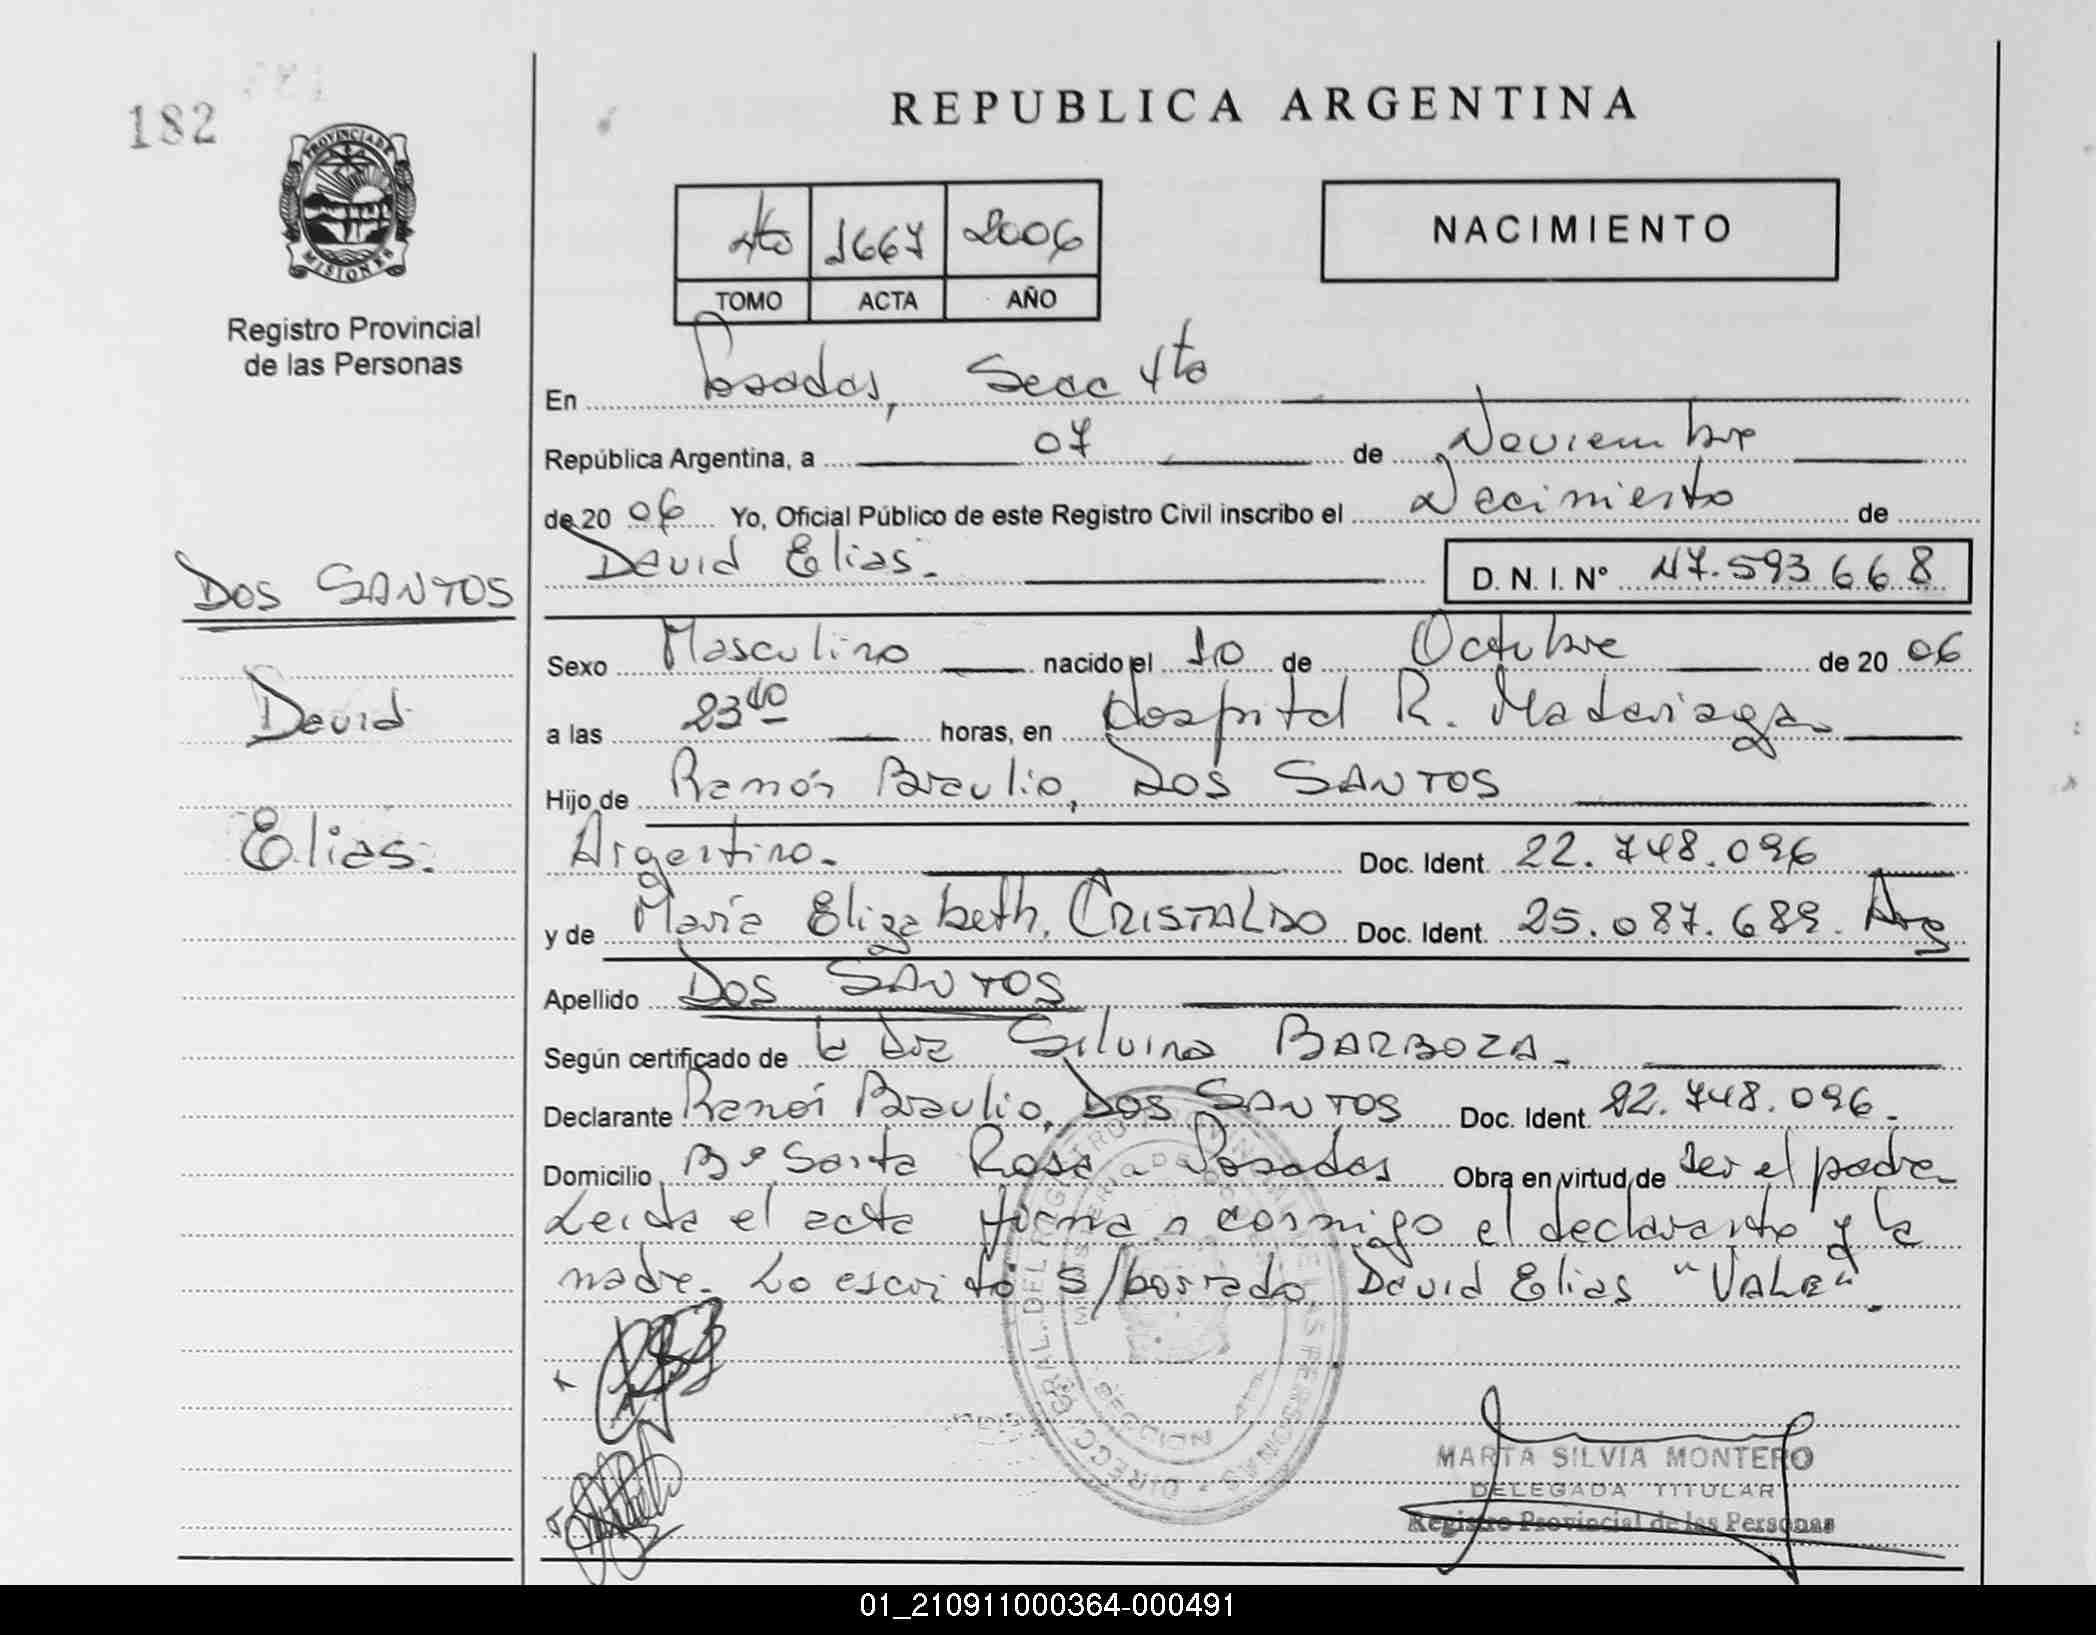 182
PROVINCIA DE
MISIONES
Registro Provincial
de las Personas
DOS SANTOS
David
Elias.
REPUBLICA ARGENTINA
4to 1667 2006
TOMO ACTA AÑO
NACIMIENTO
En Posadas, Secc 4ta
República Argentina, a 07 de Noviembre
de 20 06 Yo, Oficial Público de este Registro Civil inscribo el Nacimiento de
David Elias. D. N. I. N° 47.593668
Sexo Masculino nacido el 10 de Octubre de 20 06
a las 23 40 horas, en Hospital R. Madariaga
Hijo de Ramón Braulio, DOS SANTOS
Argentino. Doc. Ident. 22.748.096
y de María Elizabeth, CRISTALDO Doc. Ident. 25.087.689. Arg
Apellido DOS SANTOS
Según certificado de la Dra Silvina BARBOZA.
Declarante Ramón Braulio, DOS SANTOS Doc. Ident. 22.748.096.
Domicilio B° Santa Rosa - Posadas Obra en virtud de ser el padre
Leida el acta firman conmigo el declarante y la
madre. Lo escrito s/borrado David Elias "VALE".
DIRECC. GRAL. DEL REGISTRO PROVINCIAL DE LAS PERSONAS
MARTA SILVIA MONTERO
DELEGADA TITULAR
Registro Provincial de las Personas
01_210911000364-000491